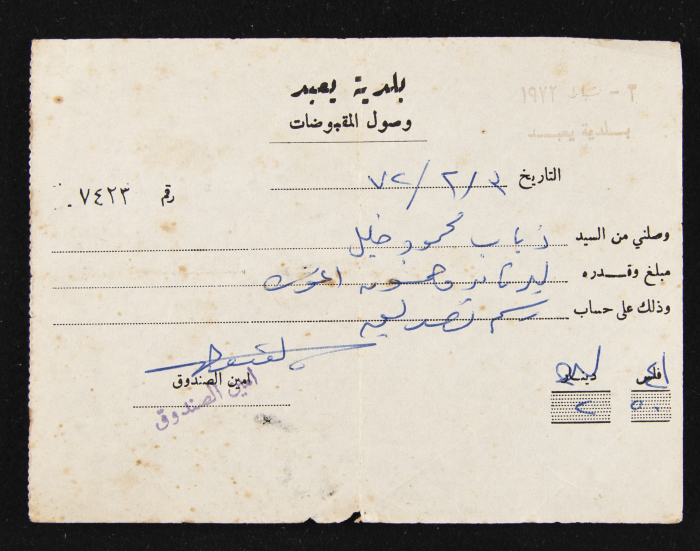 بلدية يعبد
وصول المقبوضات
٣ - شباط ١٩٧٢
بلدية يعبد
التاريخ ٣/٢/٧٢
رقم ٧٤٢٣
وصلني من السيد ذياب محمود خليل
مبلغ وقدره ليرتان وخمسون اغورة
وذلك على حساب رسم تصديق
امين الصندوق
امين الصندوق
فلس دينار
٥٠ ٢